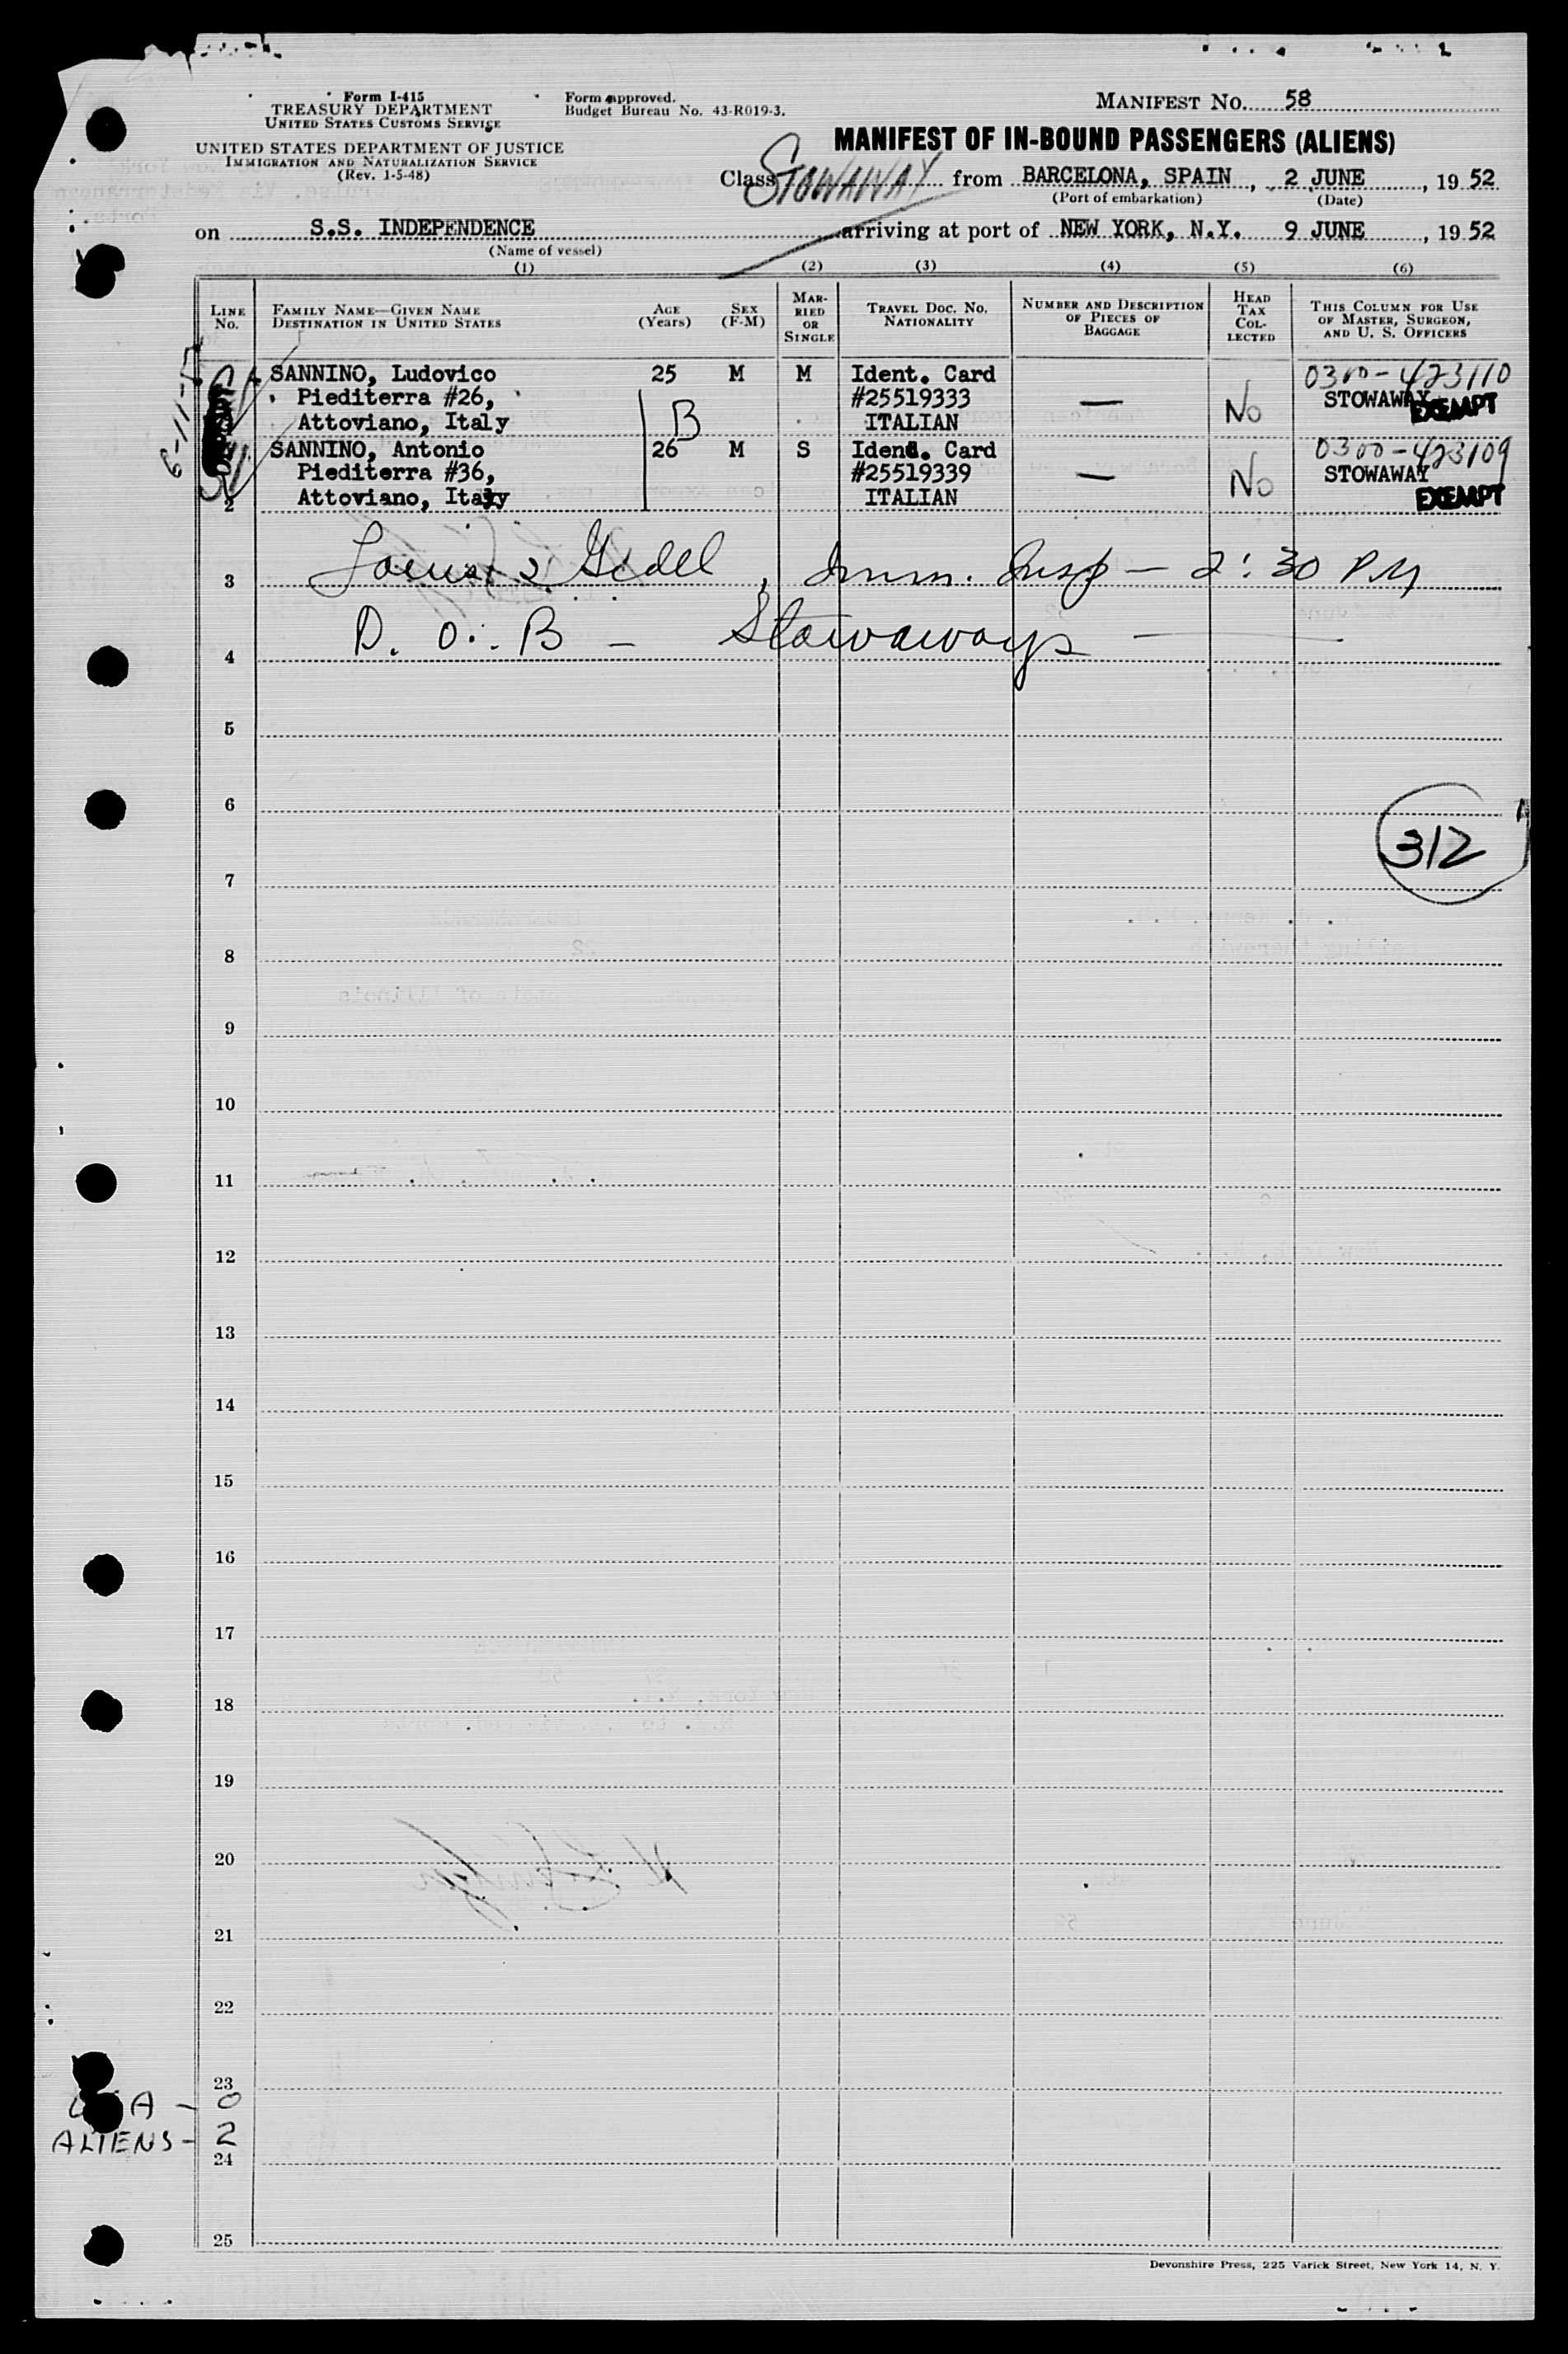 Form I-415
TREASURY DEPARTMENT
UNITED STATES CUSTOMS SERVICE
UNITED STATES DEPARTMENT OF JUSTICE
IMMIGRATION AND NATURALIZATION SERVICE
(Rev. 1-5-48)
Form approved.
Budget Bureau No. 43-R019-3.
MANIFEST No. 58
MANIFEST OF IN-BOUND PASSENGERS (ALIENS)
Class STOWAWAY from BARCELONA, SPAIN, 2 JUNE, 19 52
(Port of embarkation) (Date)
on S.S. INDEPENDENCE arriving at port of NEW YORK, N.Y. 9 JUNE, 19 52
(Name of vessel)
(1) (2) (3) (4) (5) (6)
LINE No. FAMILY NAME—GIVEN NAME DESTINATION IN UNITED STATES AGE (Years) SEX (F-M) MARRIED OR SINGLE TRAVEL DOC. NO. NATIONALITY NUMBER AND DESCRIPTION OF PIECES OF BAGGAGE HEAD TAX COLLECTED THIS COLUMN FOR USE OF MASTER, SURGEON, AND U. S. OFFICERS
SANNINO, Ludovico 25 M M Ident. Card 0300-423110
Piediterra #26, #25519333 — STOWAWAY
Attoviano, Italy B ITALIAN No EXEMPT
SANNINO, Antonio 26 M S Ident. Card 0300-423109
Piediterra #36, #25519339 — STOWAWAY
2 Attoviano, Italy ITALIAN No EXEMPT
3 Imm. Insp — 2:30 PM
4 D. O. B — Stowaways —
5
6
312
7
8
9
10
11
12
13
14
15
16
17
18
19
20
21
22
23
A - 0
ALIENS - 2
24
25
Devonshire Press, 225 Varick Street, New York 14, N. Y.